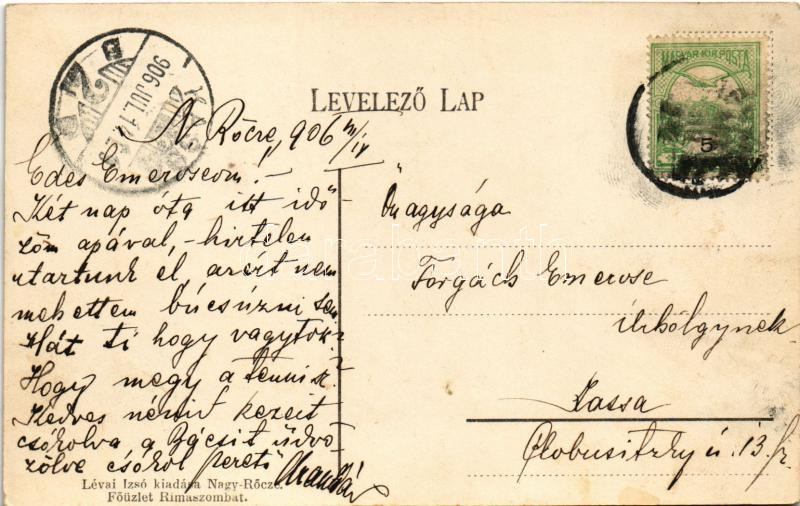 LEVELEZŐ LAP
MAGYAR KIR. POSTA
5
906 JUL 14
N Rőcze, 906 VII/14
Édes Emeroseom! –
Két nap óta itt idő-
zöm apával, – hirtelen
utaztunk el, azért nem
mehettem búcsúzni sem
Hát ti hogy vagytok?
Hogy megy a tennisz?
Kedves nénid kezeit
csókolva a Bácsit üdvö-
zölve csókol szerető
Őnagysága
Forgách Emerose
úrhölgynek
Kassa
Globusitzky ú. 13. sz.
Lévai Izsó kiadása Nagy-Rőcze.
Főüzlet Rimaszombat.
darabanth